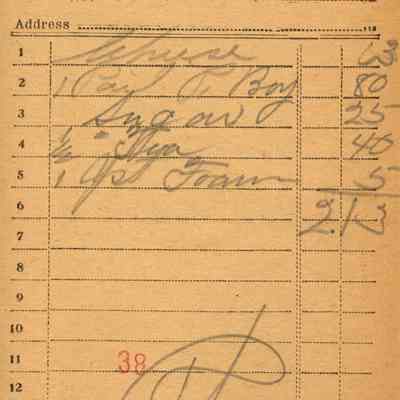 Address 118
1 Cheese 63
2 1 Pail To Boy 80
3 Sugar 25
4 ½ " 40
5 1 Foam 5
6 2.13
7
8
9
10
11 38
12